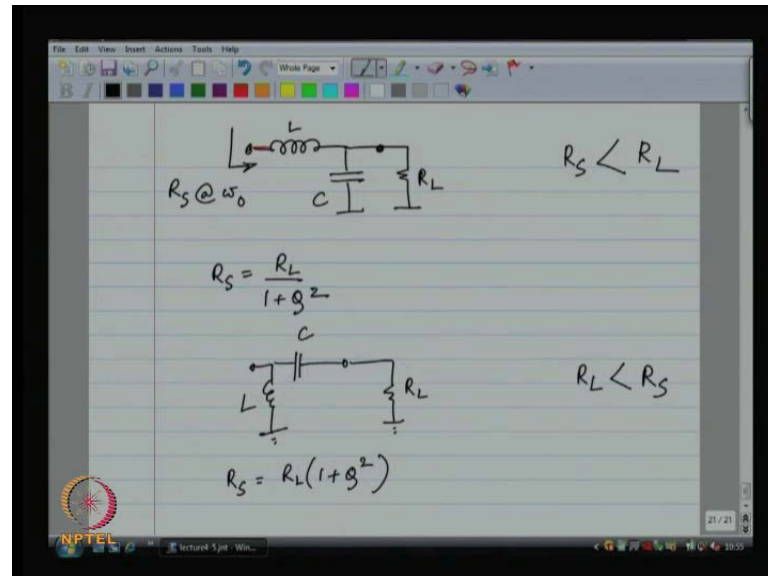 File Edit View Insert Actions Tools Help
Whole Page
B I
L
R_S @ ω_0
C
R_L
R_S < R_L
R_S = R_L / (1 + Q^2)
C
L
R_L
R_L < R_S
R_S = R_L (1 + Q^2)
21 / 21
NPTEL
lecture4-5.jnt - Win...
10:55